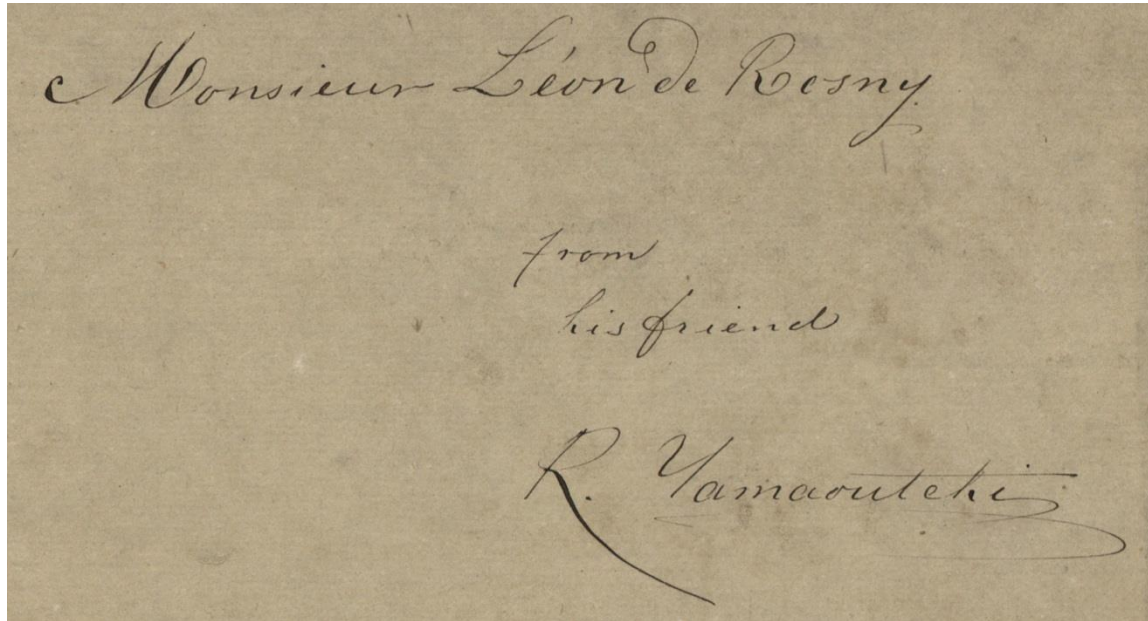 Monsieur Léon de Rosny
from
his friend
R. Yamaoutchi